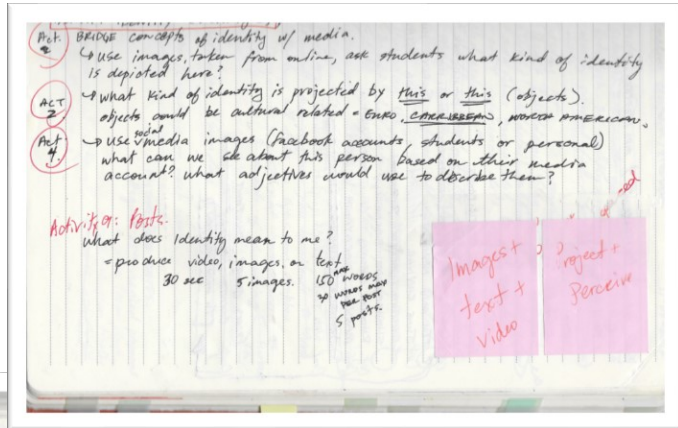 Act. BRIDGE concepts of identity w/ media.
↳ use images, taken from online, ask students what kind of identity
is depicted here?
ACT 2. ↳ what kind of identity is projected by this or this (objects).
objects could be cultural related = EURO, CARRIBBEAN, NORTH AMERICAN.
Act 4. ↳ use social media images (facebook accounts, students or personal)
what can we see about this person based on their media
account? what adjectives would use to describe them?
Activity: Posts.
what does Identity mean to me?
= produce video, images, or text
30 sec 5 images. 150 max words
30 words max
per post
5 posts.
Images +
text +
video
Project +
Perceive